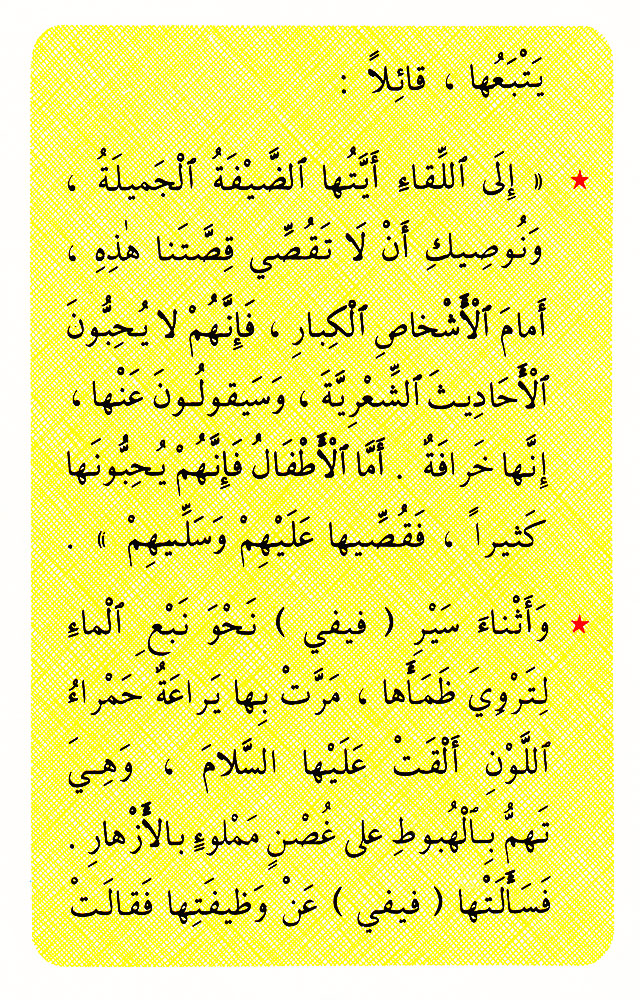 يَتْبَعُها ، قائِلاً :
★ « إِلَى ٱللِّقاءِ أَيَّتُها ٱلضَّيْفَةُ ٱلْجَميلَةُ ،
وَنُوصِيكِ أَنْ لَا تَقُصِّي قِصَّتَنا هٰذِهِ ،
أَمامَ ٱلْأَشْخاصِ ٱلْكِبارِ ، فَإِنَّهُمْ لا يُحِبُّونَ
ٱلْأَحَادِيثَ ٱلشِّعْرِيَّةَ ، وَسَيَقولُونَ عَنْها ،
إِنَّها خَرافَةٌ . أَمَّا ٱلْأَطْفَالُ فَإِنَّهُمْ يُحِبُّونَها
كَثيراً ، فَقُصِّيها عَلَيْهِمْ وَسَلِّيهِمْ » .
★ وَأَثْناءَ سَيْرِ ( فيفي ) نَحْوَ نَبْعِ ٱلْماءِ
لِتَرْوِيَ ظَمَأَها ، مَرَّتْ بِها يَراعَةٌ حَمْراءُ
ٱللَّوْنِ أَلْقَتْ عَلَيْها السَّلامَ ، وَهِيَ
تَهمُّ بِٱلْهُبوطِ على غُصْنٍ مَمْلوءٍ بالأَزْهارِ .
فَسَأَلَتْها ( فيفي ) عَنْ وَظيفَتِها فَقالَتْ